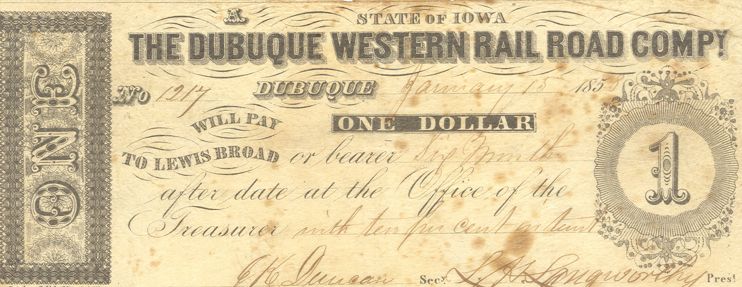 STATE OF IOWA
THE DUBUQUE WESTERN RAIL ROAD COMPY.
No 1217 DUBUQUE January 15 185
WILL PAY ONE DOLLAR
TO LEWIS BROAD or bearer Six Months
after date at the Office of the
Treasurer with ten per cent
Duncan Secy. Longworthy Prest
ONE
1